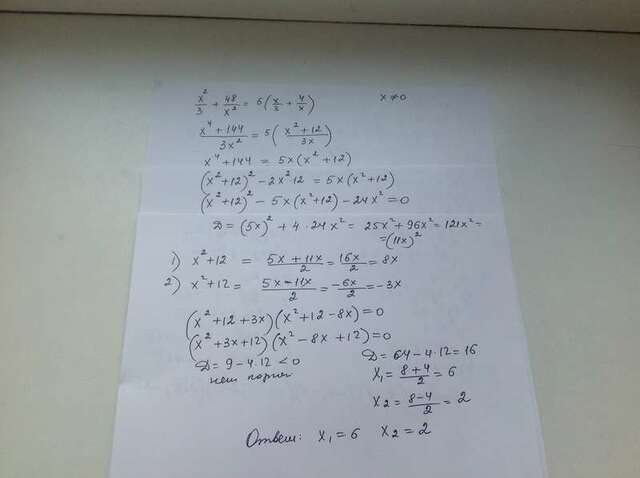 x²/3 + 48/x² = 5(x/3 + 4/x)     x ≠ 0
(x⁴ + 144)/3x² = 5((x² + 12)/3x)
x⁴ + 144 = 5x(x² + 12)
(x² + 12)² − 2x²·12 = 5x(x² + 12)
(x² + 12)² − 5x(x² + 12) − 24x² = 0
D = (5x)² + 4·24x² = 25x² + 96x² = 121x² =
= (11x)²
1) x² + 12 = (5x + 11x)/2 = 16x/2 = 8x
2) x² + 12 = (5x − 11x)/2 = −6x/2 = −3x
(x² + 12 + 3x)(x² + 12 − 8x) = 0
(x² + 3x + 12)(x² − 8x + 12) = 0
D = 9 − 4·12 < 0
нет корней
D = 64 − 4·12 = 16
x₁ = (8 + 4)/2 = 6
x₂ = (8 − 4)/2 = 2
Ответ: x₁ = 6   x₂ = 2